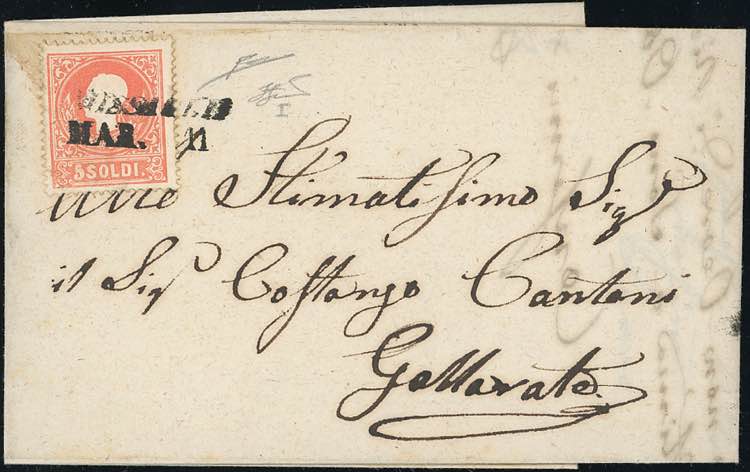 MAR. 11
5 SOLDI.
Stimatissimo Sigr
il Sigr Costanzo Cantoni
Gallarate